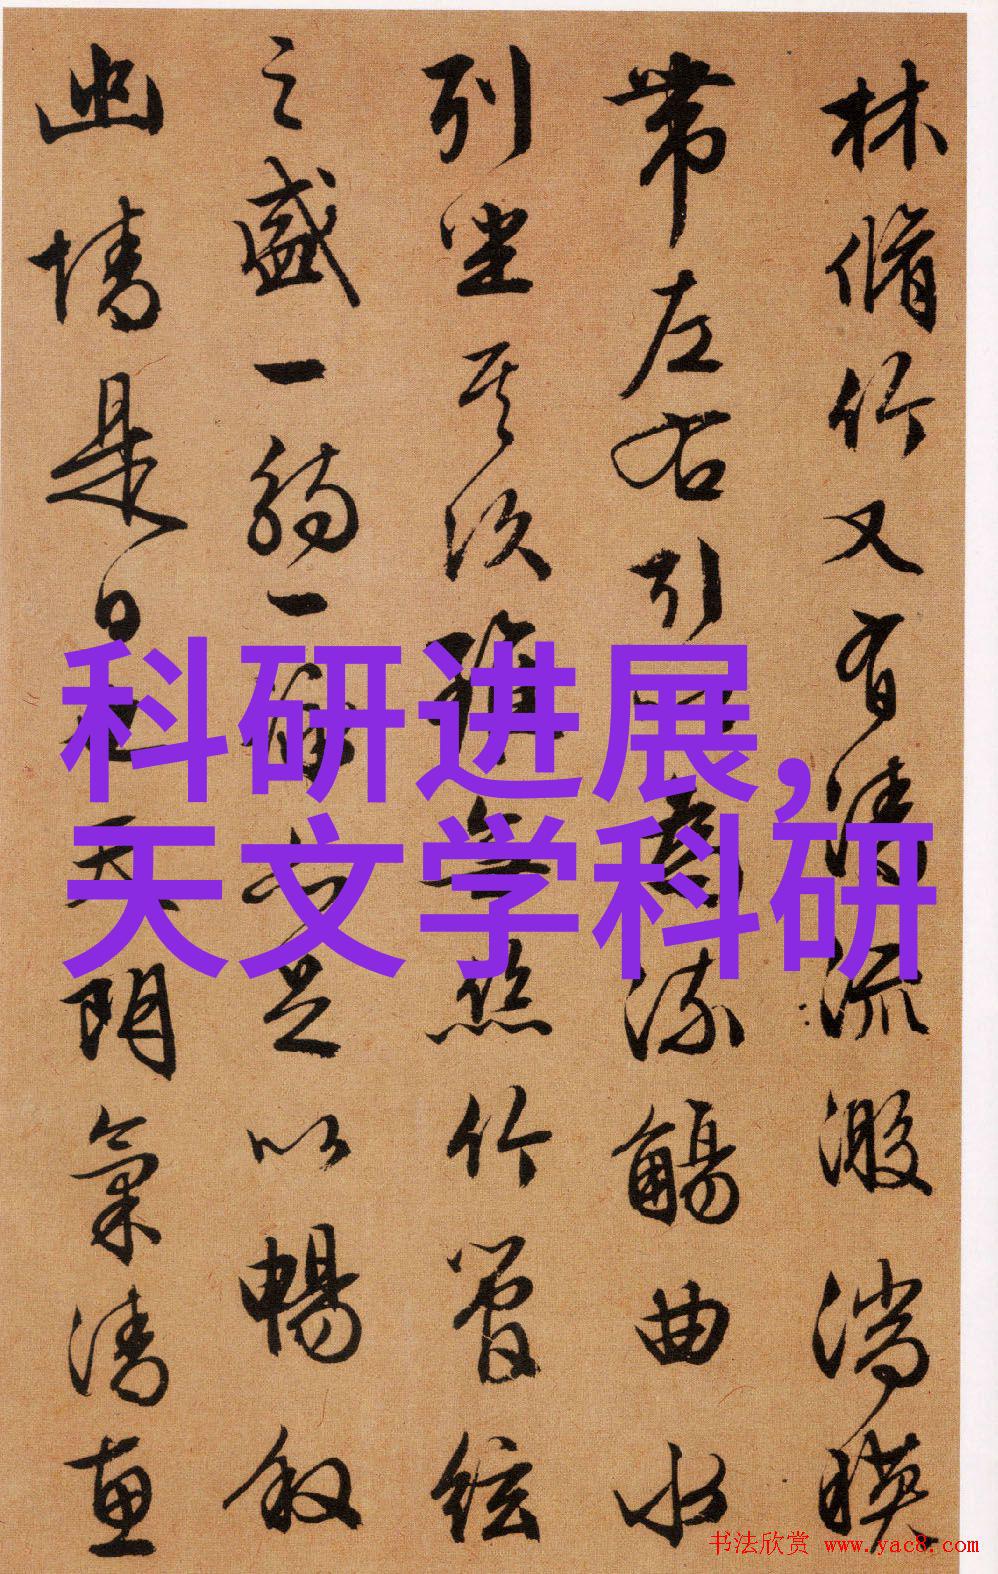 林脩竹又有清流激湍映
帶左右引以為流觴曲水
列坐其次雖無絲竹管絃
之盛一觴一詠亦足以暢敘
幽情是日也天朗氣清惠
科研进展,
天文学科研
书法欣赏 www.yac8.com